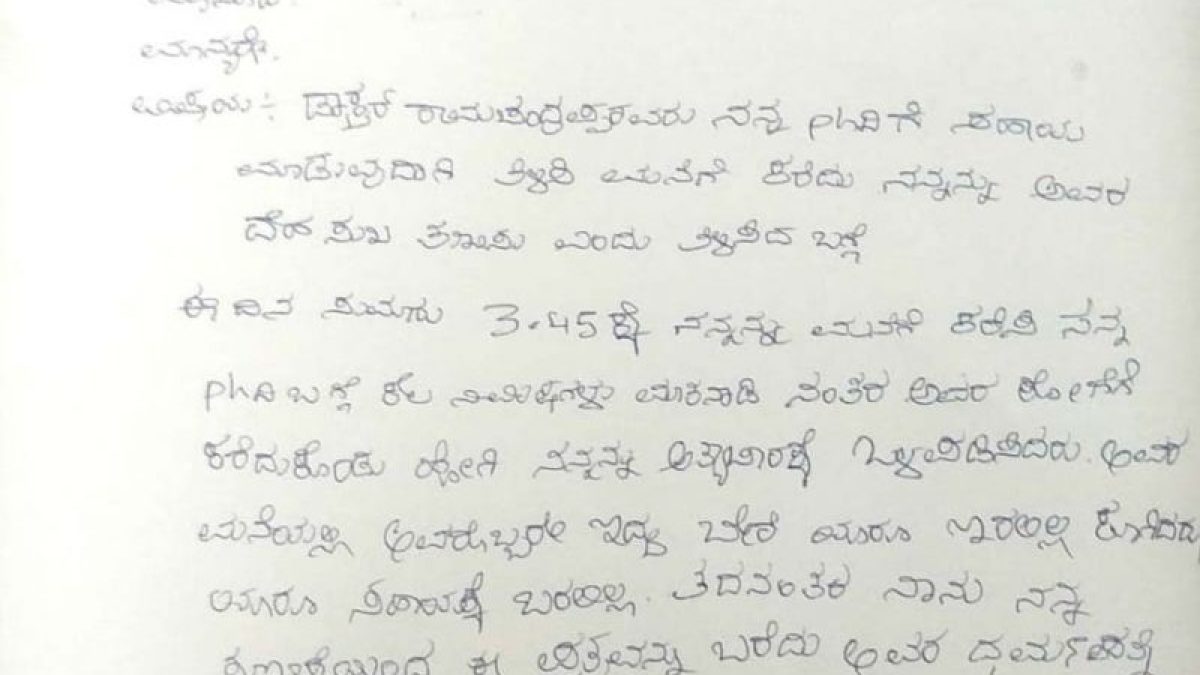 ಮಾನ್ಯರೇ.
ವಿಷಯ : ಡಾಕ್ಟರ್ ರಾಮಚಂದ್ರಪ್ಪರವರು ನನ್ನ phdಗೆ ಸಹಾಯ
ಮಾಡುವುದಾಗಿ ತಿಳಿಸಿ ಮನೆಗೆ ಕರೆದು ನನ್ನನ್ನು ಅವರ
ದೇಹ ಸುಖ ತೀರಿಸು ಎಂದು ತಿಳಿಸಿದ ಬಗ್ಗೆ
ಈ ದಿನ ಸುಮಾರು 3.45ಕ್ಕೆ ನನ್ನನ್ನು ಮನೆಗೆ ಕರೆಸಿ ನನ್ನ
phd ಬಗ್ಗೆ ಕೆಲ ನಿಮಿಷಗಳು ಮಾತನಾಡಿ ನಂತರ ಅವರ ಕೋಣೆಗೆ
ಕರೆದುಕೊಂಡು ಹೋಗಿ ನನ್ನನ್ನು ಅತ್ಯಾಚಾರಕ್ಕೆ ಒಳಪಡಿಸಿದರು. ಅವರ
ಮನೆಯಲ್ಲಿ ಅವರೊಬ್ಬರೇ ಇದ್ದು ಬೇರೆ ಯಾರೂ ಇರಲಿಲ್ಲ ಕೂಗಿದರು
ಯಾರೂ ಸಹಾಯಕ್ಕೆ ಬರಲಿಲ್ಲ. ತದನಂತರ ನಾನು ನನ್ನ
ಈ ಪತ್ರವನ್ನು ಬರೆದು ಅವರ ಧರ್ಮಪತ್ನಿ